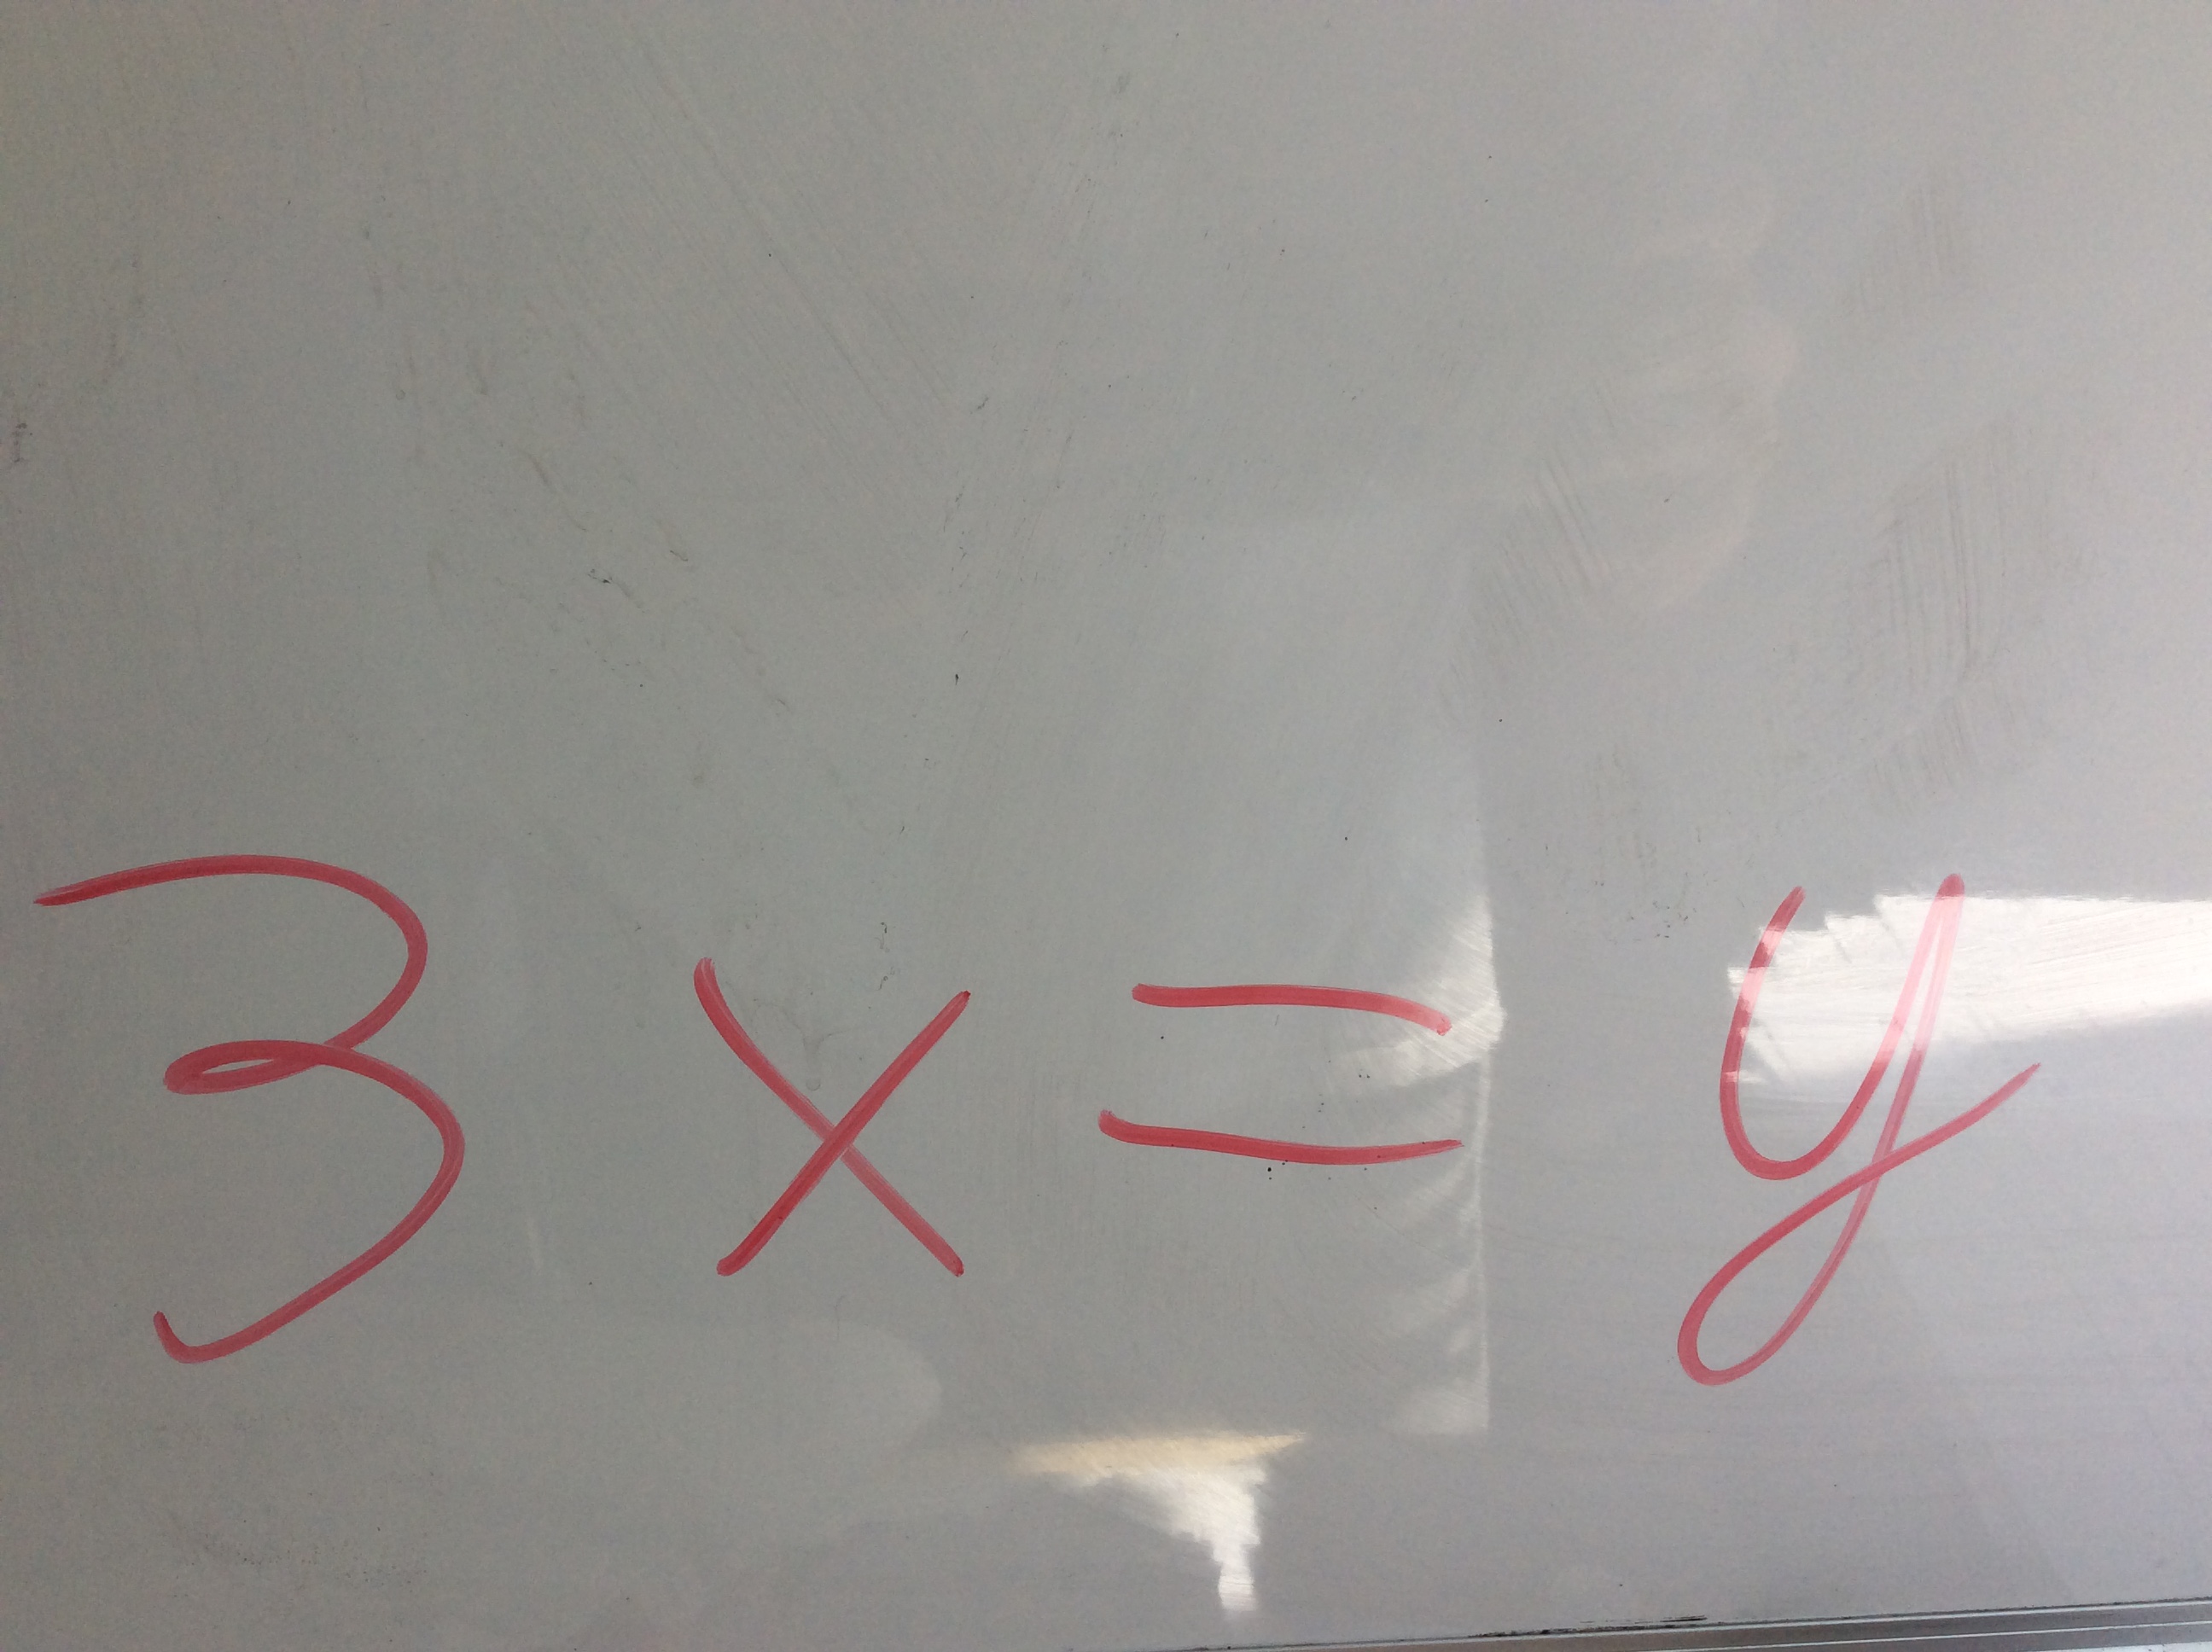 3x = y